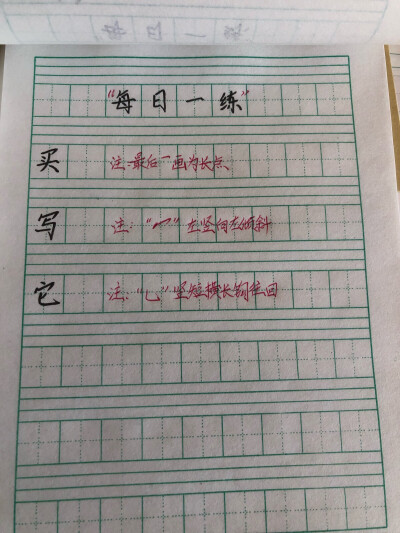 “每日一练”
买 注:最后一画为长点
写 注:“冖”左竖向左倾斜
它 注:“乚”竖短横长钩往回